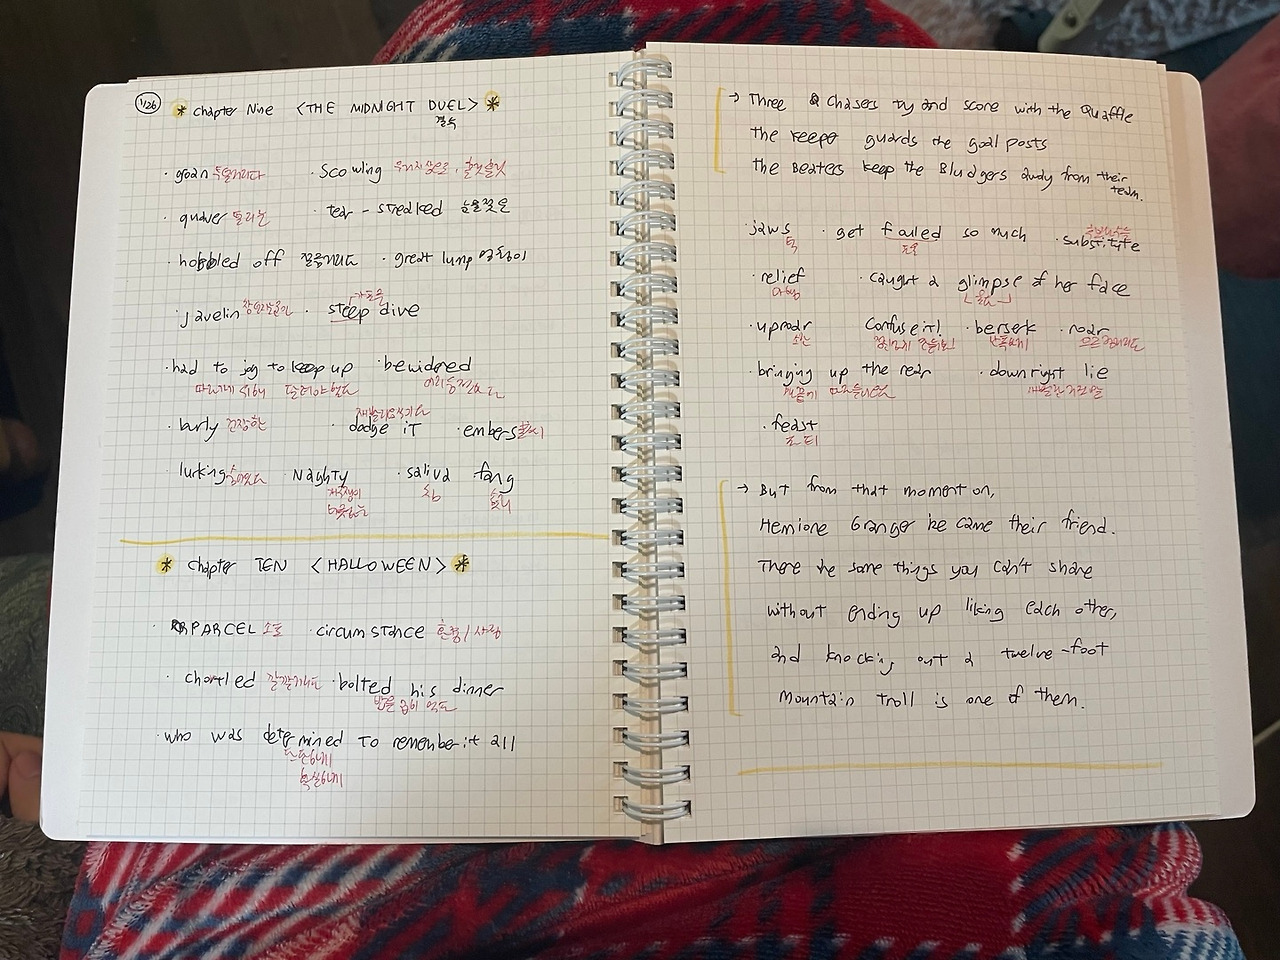 1/26 * Chapter Nine <THE MIDNIGHT DUEL> *
결투
· goan 투덜거리다 · scowling
· quaver 떨리는 · tear-streaked 눈물젖은
· hobbled off 절름거리다 · great lump 멍청이
가파른
· javelin · steep dive
· had to jog to keep up · bewidred
따라가기 위해 달려야 했다 어리둥절하다
· burly 건장한 · dodge iT · embers 불씨
· lurking 숨어있다 · Naghty · saliva · fang
침 송곳니
버릇없는
* Chapter TEN <HALLOWEEN> *
· PARCEL 소포 · circumstance 환경/사정
· chortled 깔깔거리다 · bolted his dinner
밥을 급히 먹다
· who was determined to remember it all
단단하게
확실하게
→ Three Chasers ty and score with the Quaffle
The keeper guards the goal posts
The Beaters keep the Bludgers away from their
team.
· jaws · get foiled so much · substitute
턱
· relief · caught a glimpse of her face
안심
· uproar Confuse it! · berserk · roar
소란 으르렁거리다
· bringing up the rear · downright lie
새빨간 거짓말
· feast
파티
→ But from that moment on,
Hemione Granger be came their friend.
There are some things you can't share
without ending up liking each other,
and knocking out a twelve-foot
mountain troll is one of them.